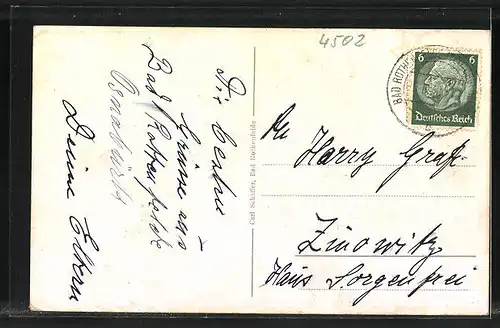 4502
Die besten
Grüsse aus
Bad Rothenfelde
Osnabrück
Deine Eltern
Carl Schäffer, Bad Rothenfelde
BAD ROTHENFELDE
6 6
Deutsches Reich
Harry Graf.
Zinowitz
Haus Sorgenfrei